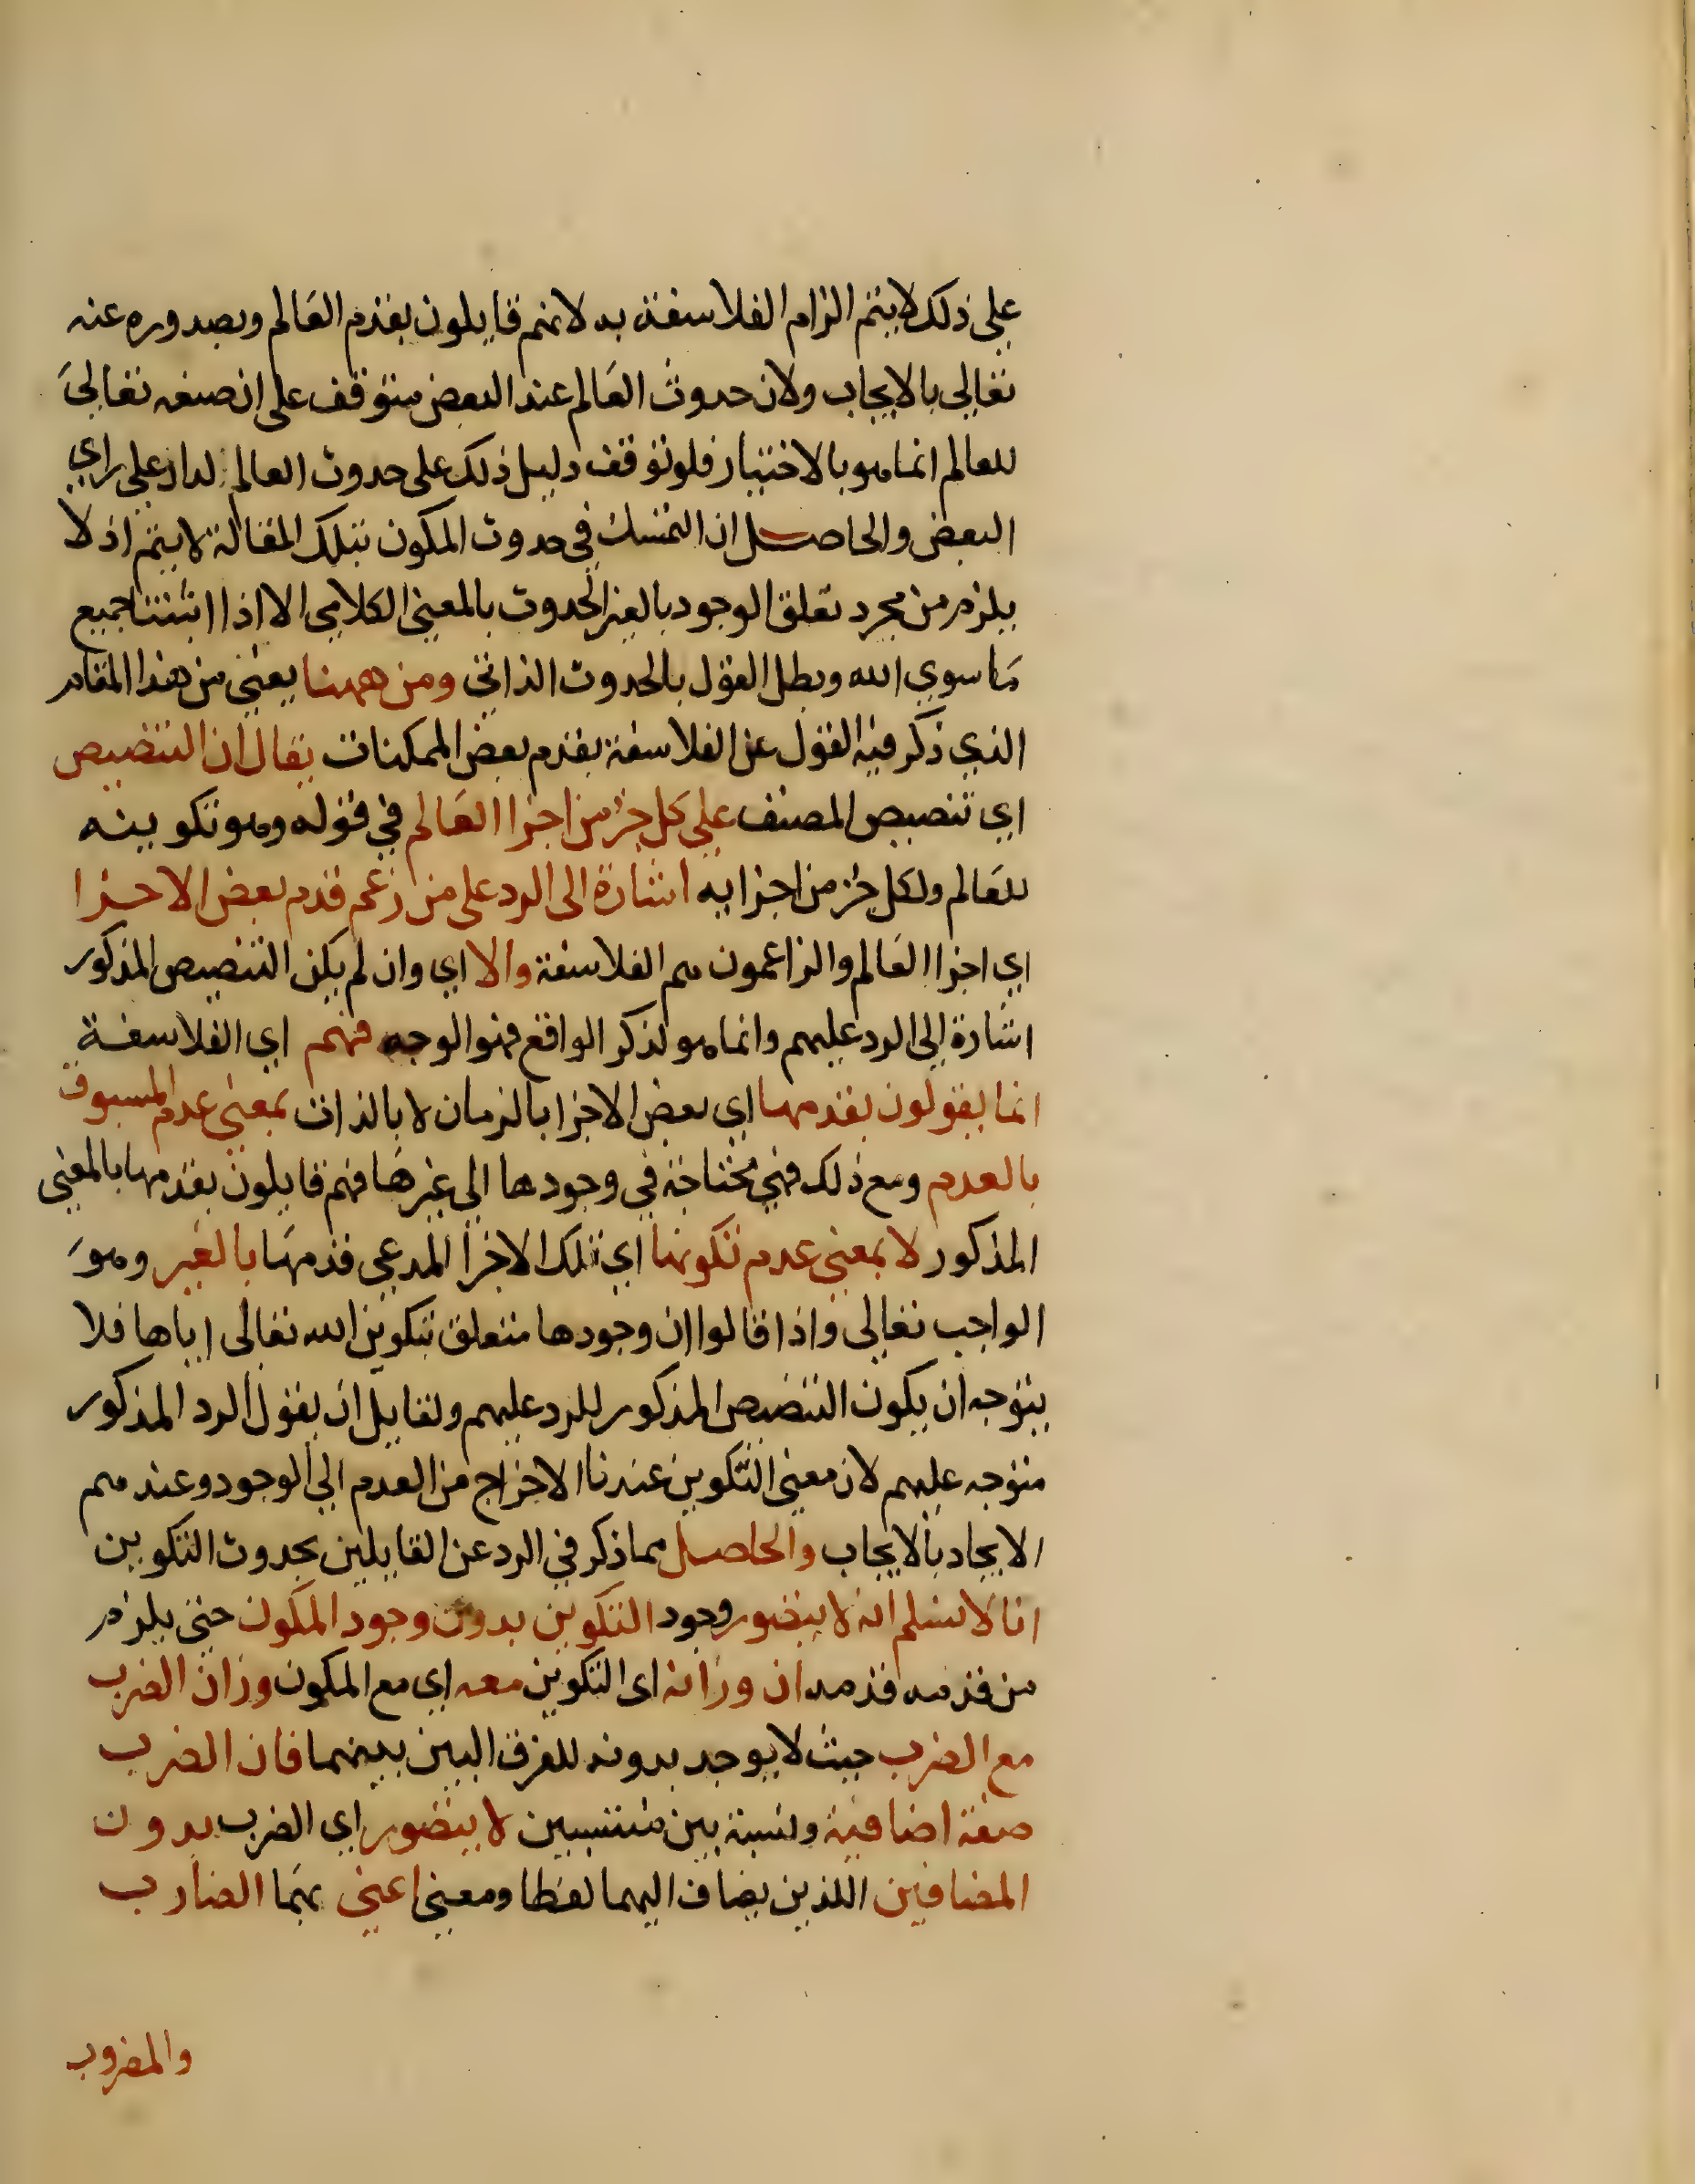 على ذلك لا يتم الزام الفلاسفة به لانهم قايلون بقدم العالم وبصدوره عنه
تعالى بالايجاب ولان حدوث العالم عند البعض متوقف على ان صنعه تعالى
للعالم انما هو بالاختيار فلو توقف دليل ذلك على حدوث العالم لدار على راي
البعض والحاصل ان التمسك في حدوث المكون بتلك المقالة لا يتم اذ لا
يلزم من مجرد تعلق الوجود بالغير الحدوث بالمعنى الكلامي الا اذا اثبتنا جميع
ما سوى الله وبطل القول بالحدوث الذاتي ومن ههنا يعني من هذا المقام
الذي ذكر فيه القول عن الفلاسفة بقدم بعض الممكنات يقال ان التنصيص
اي تنصيص المصنف على كل جزء من اجزا العالم في قوله وهو تكوينه
للعالم ولكل جزء من اجزايه اشارة الى الرد على من زعم قدم بعض الاجزا
اي اجزا العالم والزاعمون هم الفلاسفة والا اي وان لم يكن التنصيص المذكور
اشارة الى الرد عليهم وانما هو لذكر الواقع فهو الوجه فهم اي الفلاسفة
انما يقولون بقدمها اي بعض الاجزا بالزمان لا بالذات بمعنى عدم المسبوق
بالعدم ومع ذلك فهي محتاجة في وجودها الى غيرها فهم قايلون بقدمها بالمعنى
المذكور لا بمعنى عدم تكونها اي تلك الاجزا المدعى قدمها بالغير وهو
الواجب تعالى واذا قالوا ان وجودها متعلق بتكوين الله تعالى اياها فلا
يتوجه ان يكون التنصيص المذكور للرد عليهم ولقايل ان يقول الرد المذكور
متوجه عليهم لان معنى التكوين عندنا الاخراج من العدم الى الوجود وعندهم
الايجاد بالايجاب والحاصل مما ذكر في الرد عن القايلين بحدوث التكوين
انا لا نسلم انه لا يتصور وجود التكوين بدون وجود المكون حتى يلزم
من قدمه قدمه ان وزانه اى التكوين معه اي مع المكون وزان الضرب
مع الضرب حيث لا يوجد بدونه للفرق البين بينهما فان الضرب
صفة اضافية ونسبة بين منتسبين لا يتصور اي الضرب بدون
المضافين اللذين يضاف اليهما لفظا ومعنى اعني بهما الضارب
والمضروب